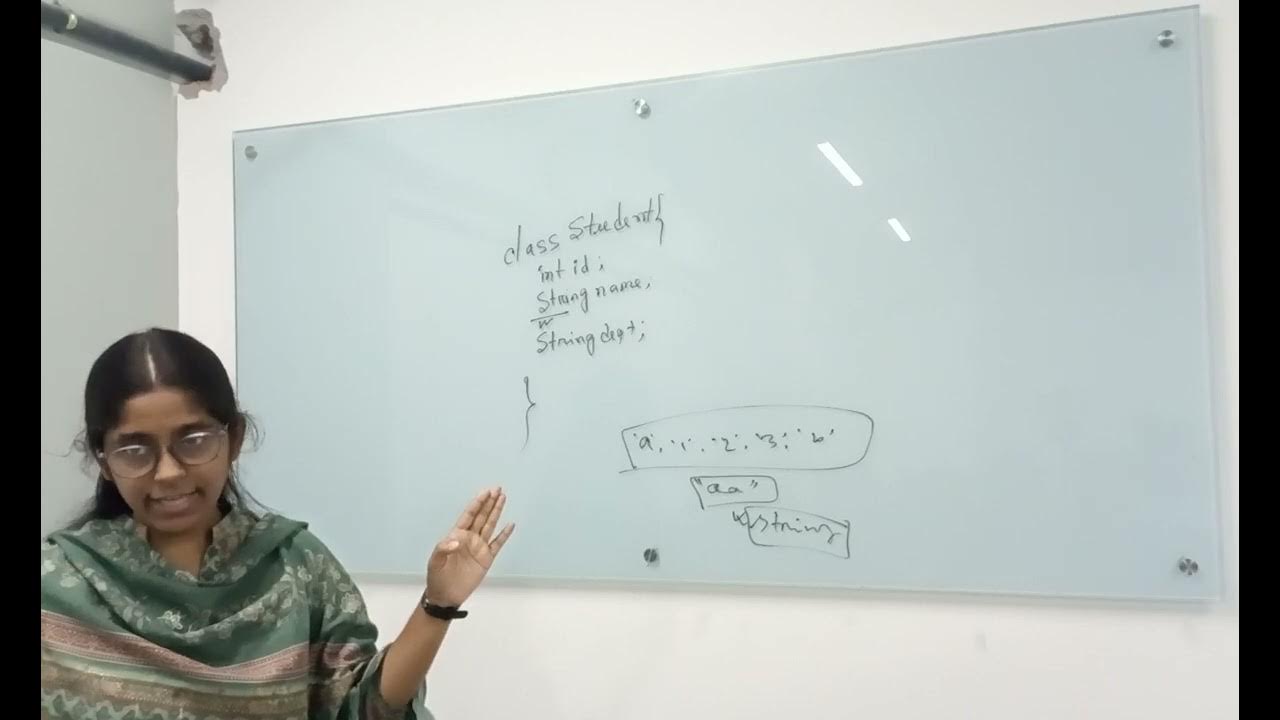 class Student{
int id;
String name;
String dept;
}
'a', '1', '2', '3', 'b'
"aa"
String